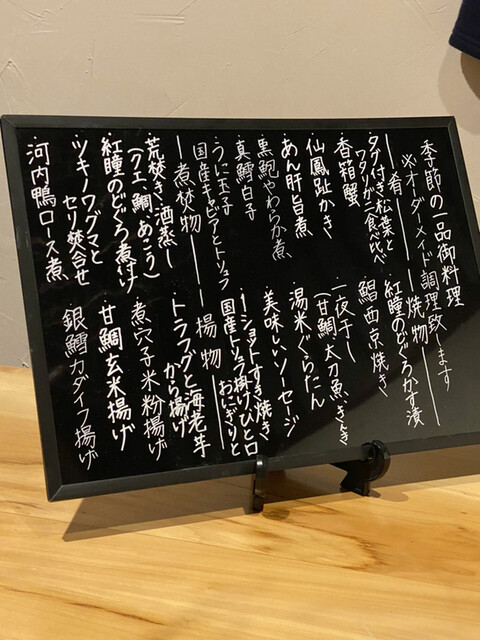 季節の一品御料理
※オーダーメイド調理致します
―肴―
・タグ付き松葉と
ワタリガニ食べ比べ
・香箱蟹
・仙鳳趾かき
・あん肝旨煮
・黒鮑やわらか煮
・真鱈白子
・うに玉子
国産キャビアとトリュフ
―煮焚物―
・荒焚き、酒蒸し
(クエ、鯛、あこう)
・紅瞳のどぐろ煮付け
・ツキノワグマと
セリ焚合せ
・河内鴨ロース煮
―焼物―
・紅瞳のどぐろかす漬
・鯧西京焼き
・一夜干し
(甘鯛、太刀魚、きんき
・湯米ぐらたん
・美味しいソーセージ
・1ショットすき焼き
国産トリュフ掛けひと口
おにぎりと
―揚物―
・トラフグと海老芋
から揚げ
・煮穴子米粉揚げ
・甘鯛玄米揚げ
・銀鱈カダイフ揚げ